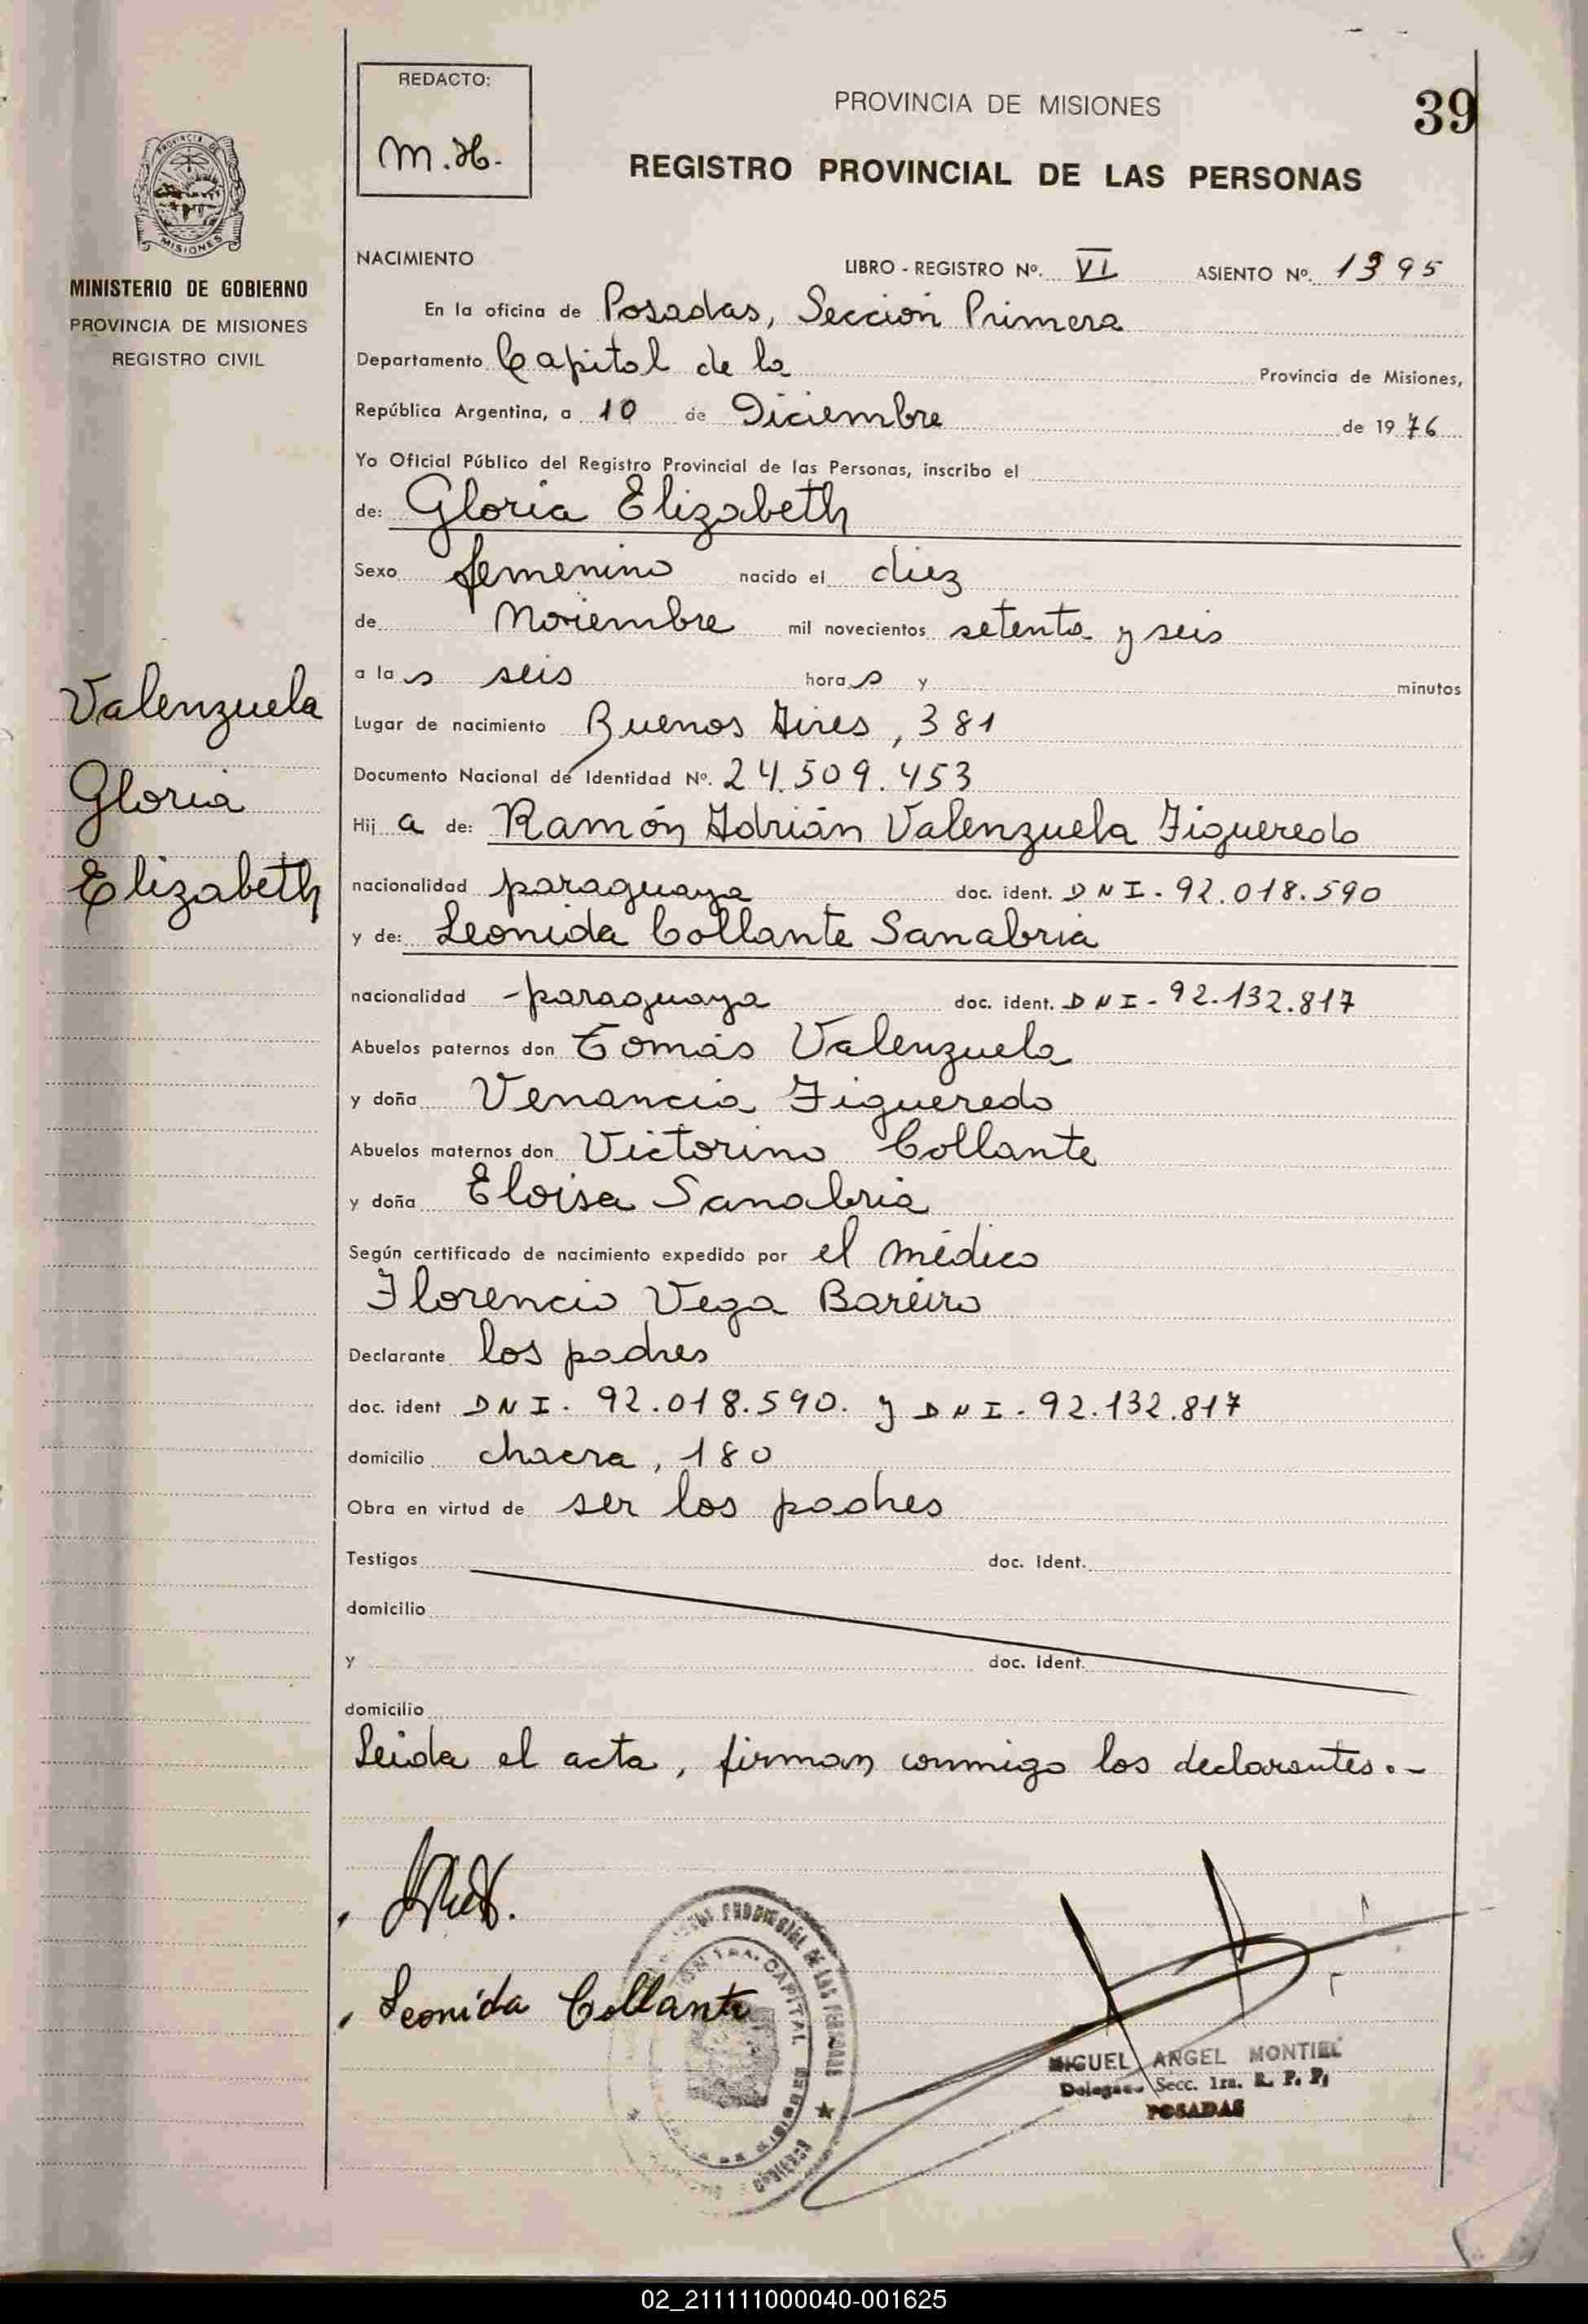 REDACTO:
M.H.
PROVINCIA DE MISIONES
39
REGISTRO PROVINCIAL DE LAS PERSONAS
PROVINCIA DE
MISIONES
MINISTERIO DE GOBIERNO
PROVINCIA DE MISIONES
REGISTRO CIVIL
NACIMIENTO
LIBRO - REGISTRO Nº. VI ASIENTO Nº. 1395
En la oficina de Posadas, Sección Primera
Departamento Capital de la Provincia de Misiones,
República Argentina, a 10 de Diciembre de 1976
Yo Oficial Público del Registro Provincial de las Personas, inscribo el
de: Gloria Elizabeth
Sexo femenino nacido el diez
de Noviembre mil novecientos setenta y seis
a las seis horas y minutos
Valenzuela
Gloria
Elizabeth
Lugar de nacimiento Buenos Aires, 381
Documento Nacional de Identidad Nº. 24.509.453
Hij a de: Ramón Adrián Valenzuela Figueredo
nacionalidad paraguaya doc. ident. DNI - 92.018.590
y de: Leonida Collante Sanabria
nacionalidad paraguaya doc. ident. DNI - 92.132.817
Abuelos paternos don Tomás Valenzuela
y doña Venancia Figueredo
Abuelos maternos don Victorino Collante
y doña Eloisa Sanabria
Según certificado de nacimiento expedido por el médico
Florencio Vega Bareiro
Declarante los padres
doc. ident DNI. 92.018.590. y DNI. 92.132.817
domicilio chacra, 180
Obra en virtud de ser los padres
Testigos doc. ident.
domicilio
y doc. ident.
domicilio
Leida el acta, firman conmigo los declarantes.-
Leonida Collante
PROVINCIAL DE LAS PERSONAS
1ra. CAPITAL
MIGUEL ANGEL MONTIEL
Delegado Secc. 1ra. R. P. P.
POSADAS
02_211111000040-001625